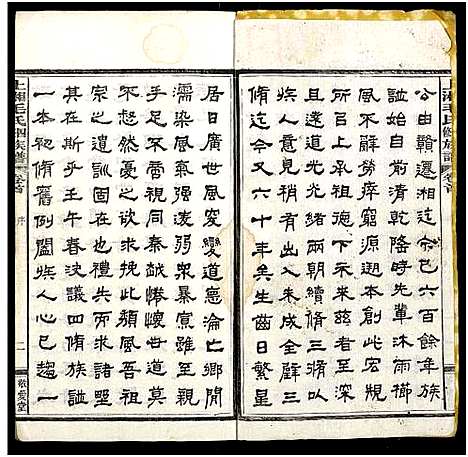 上湘毛氏四修族譜 卷首
公由贛遷湘迄今已六百餘年族
譜始自敝清乾隆時先輩沐雨櫛
風不辭勞瘁窮源遡本創此宏規
所㠯上承祖德下示來茲者至深
且遠道光光緒兩朝續修三修以
族人意見未洽一時未成全璧三
修迄今又六十年矣生齒日繁星
居日廣世風愈變道悳淪亡鄉閭
濡染風氣強弱眾暴富雖至親
手足不啻視同秦越慘懷世道莫
不愀然憂之欲求挽此頹風吾祖
宗之遺訓固在也禮失求諸野
其在斯乎壬午春決議四脩族譜
一本初脩舊例闔族人心已趨一
上湘毛氏四修族譜 卷首
序
二
敬愛堂